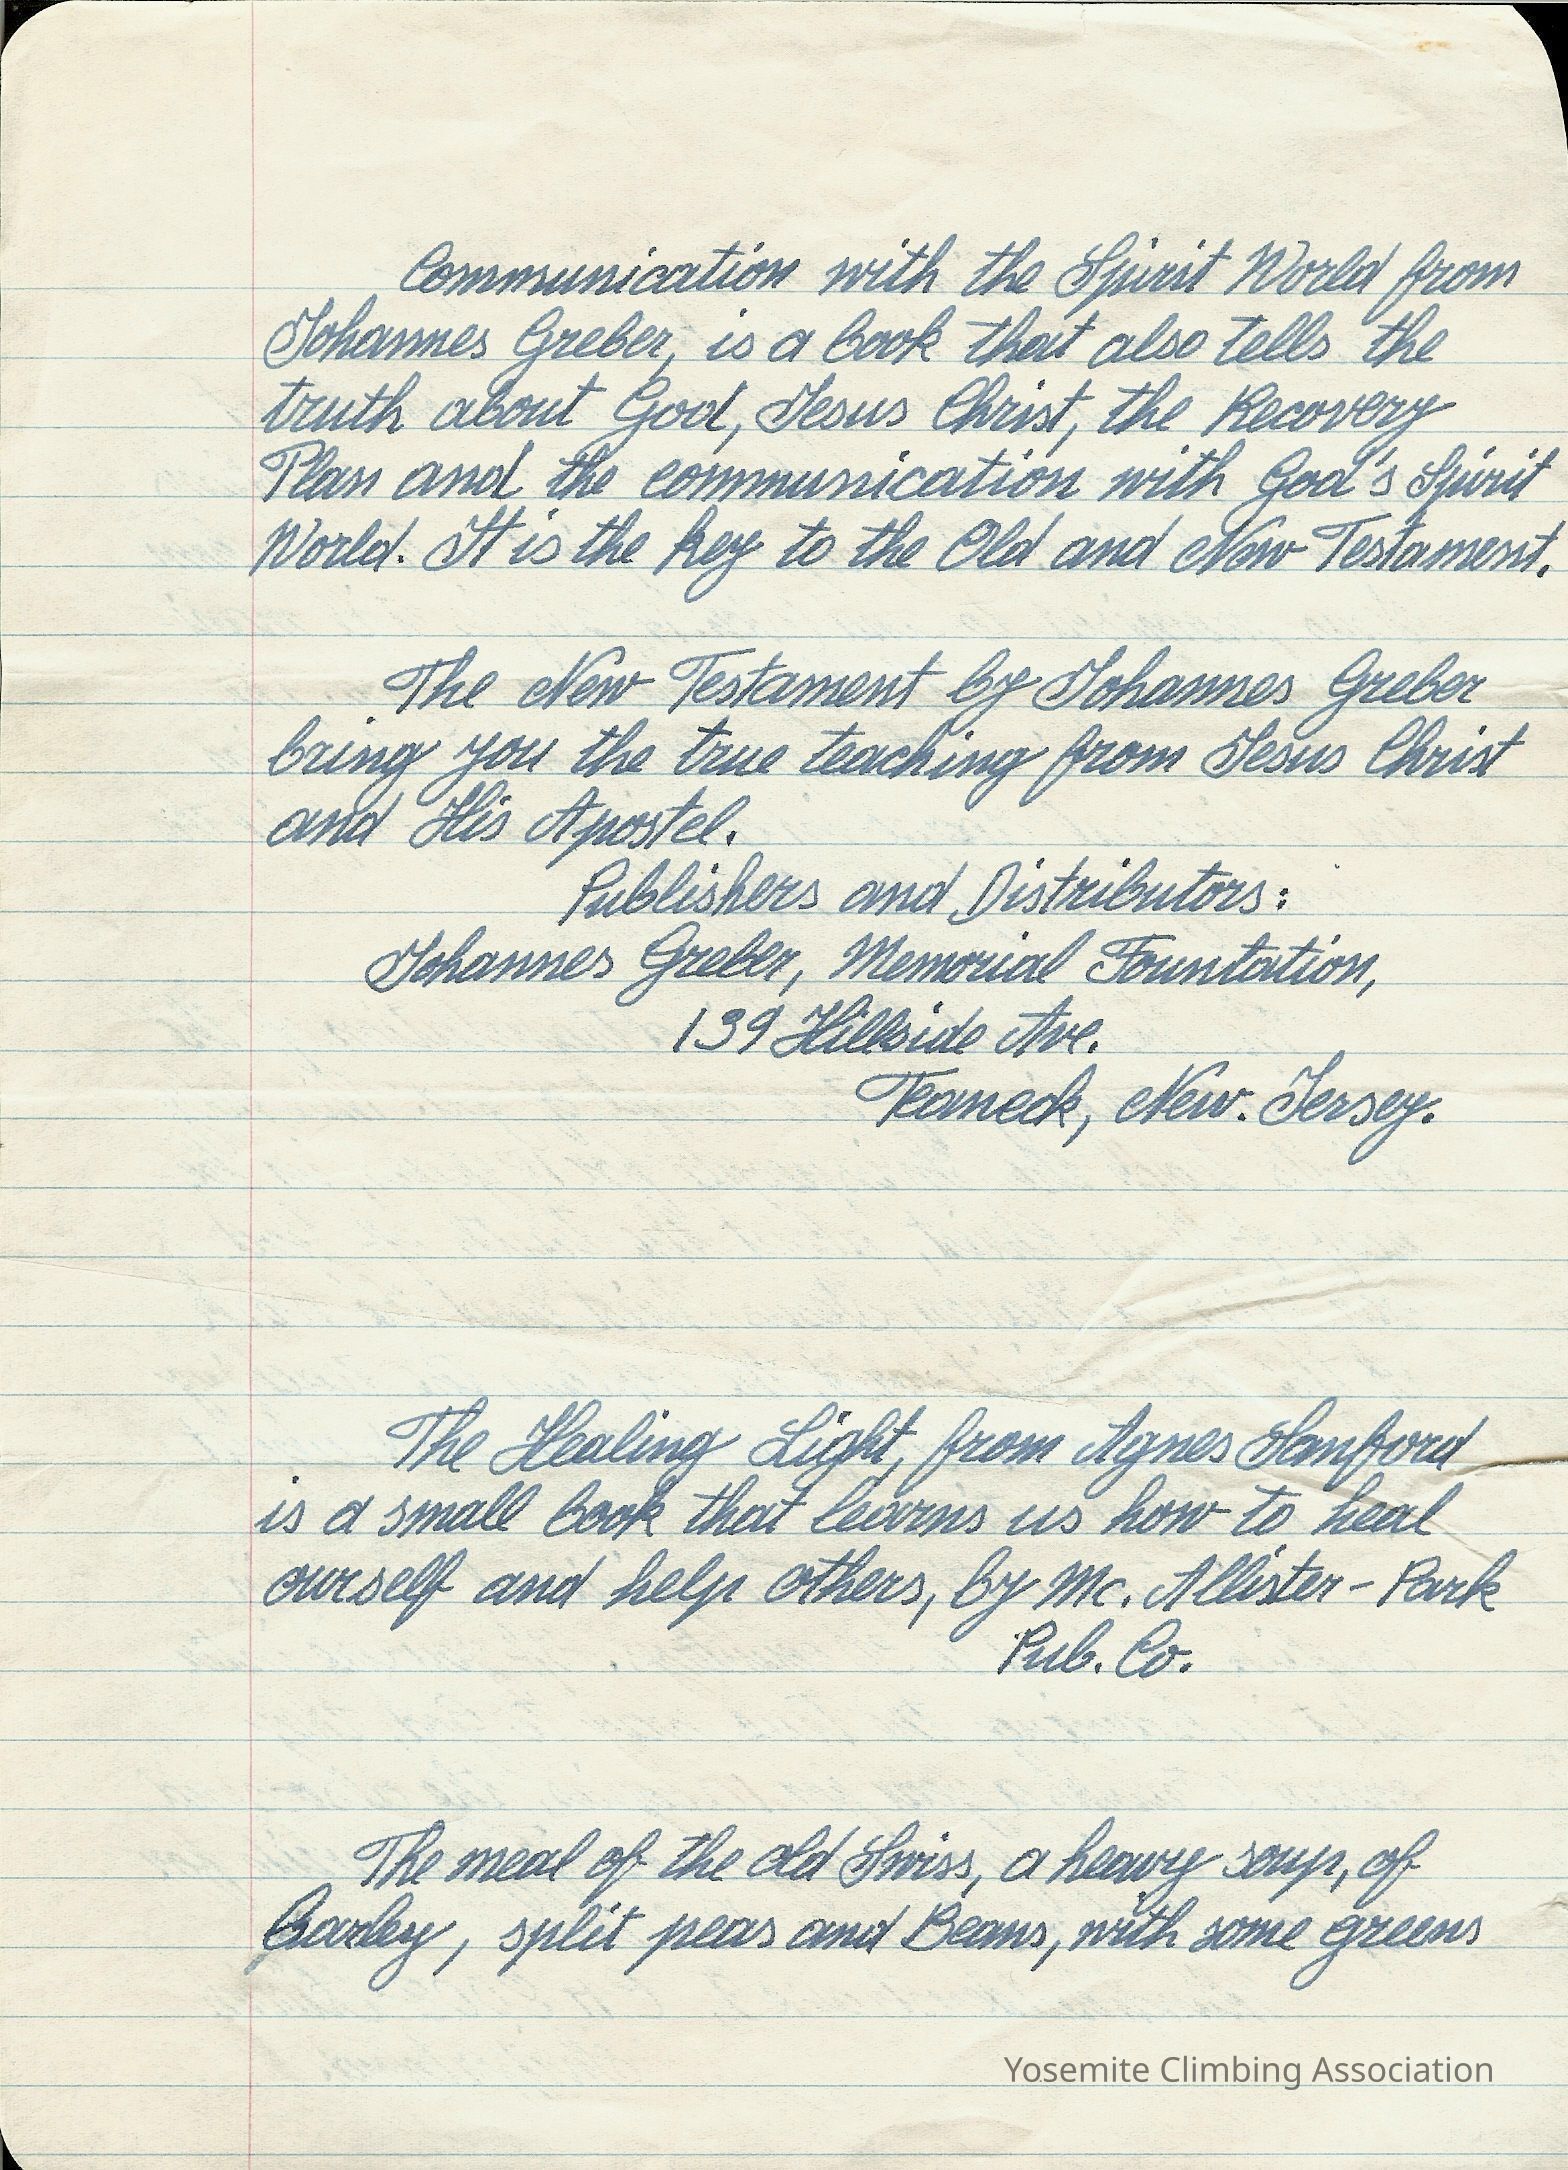 Communication with the Spirit World from
Johannes Greber, is a book that also tells the
truth about God, Jesus Christ, the Recovery
Plan and the communication with God's Spirit
World. It is the key to the Old and New Testament.
The New Testament by Johannes Greber
bring you the true teaching from Jesus Christ
and His Apostel.
Publishers and Distributors:
Johannes Greber, Memorial Fountation,
139 Hillside Ave.
Teaneck, New. Jersey.
The Healing Light, from Agnes Sanford
is a small book that learns us how to heal
ourself and help others, by Mc. Allister - Park
Pub. Co.
The meal of the old Swiss, a heavy soup, of
Barley, split peas and Beans, with some greens
Yosemite Climbing Association